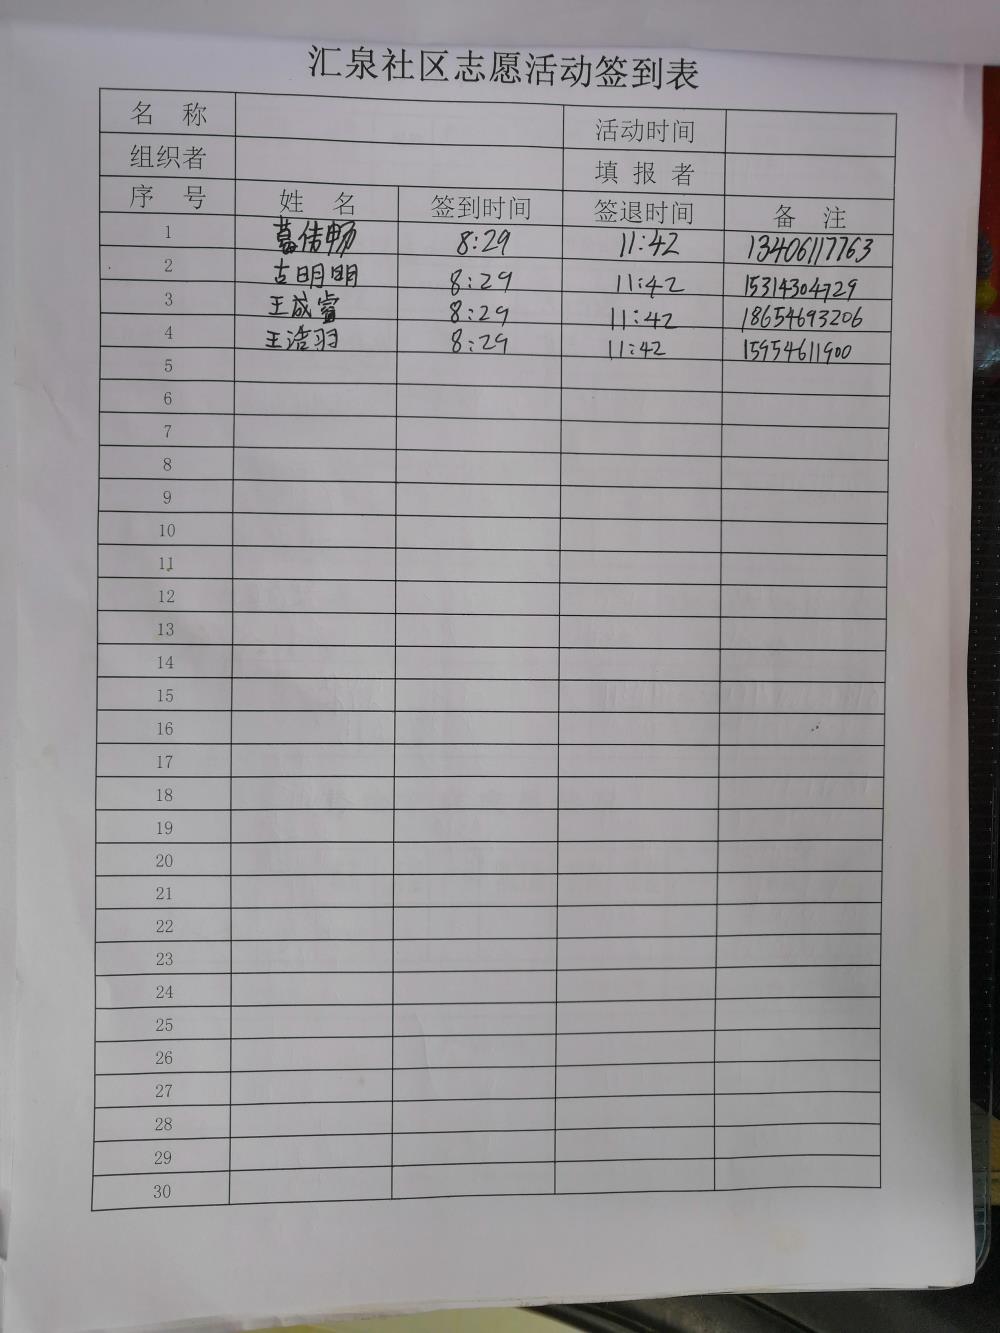 汇泉社区志愿活动签到表
名 称 活动时间
组织者 填 报 者
序 号 姓 名 签到时间 签退时间 备 注
1 葛佳畅 8:29 11:42 13406117763
2 古明明 8:29 11:42 15314304729
3 王成睿 8:29 11:42 18654693206
4 王浩羽 8:29 11:42 15954611900
5
6
7
8
9
10
11
12
13
14
15
16
17
18
19
20
21
22
23
24
25
26
27
28
29
30